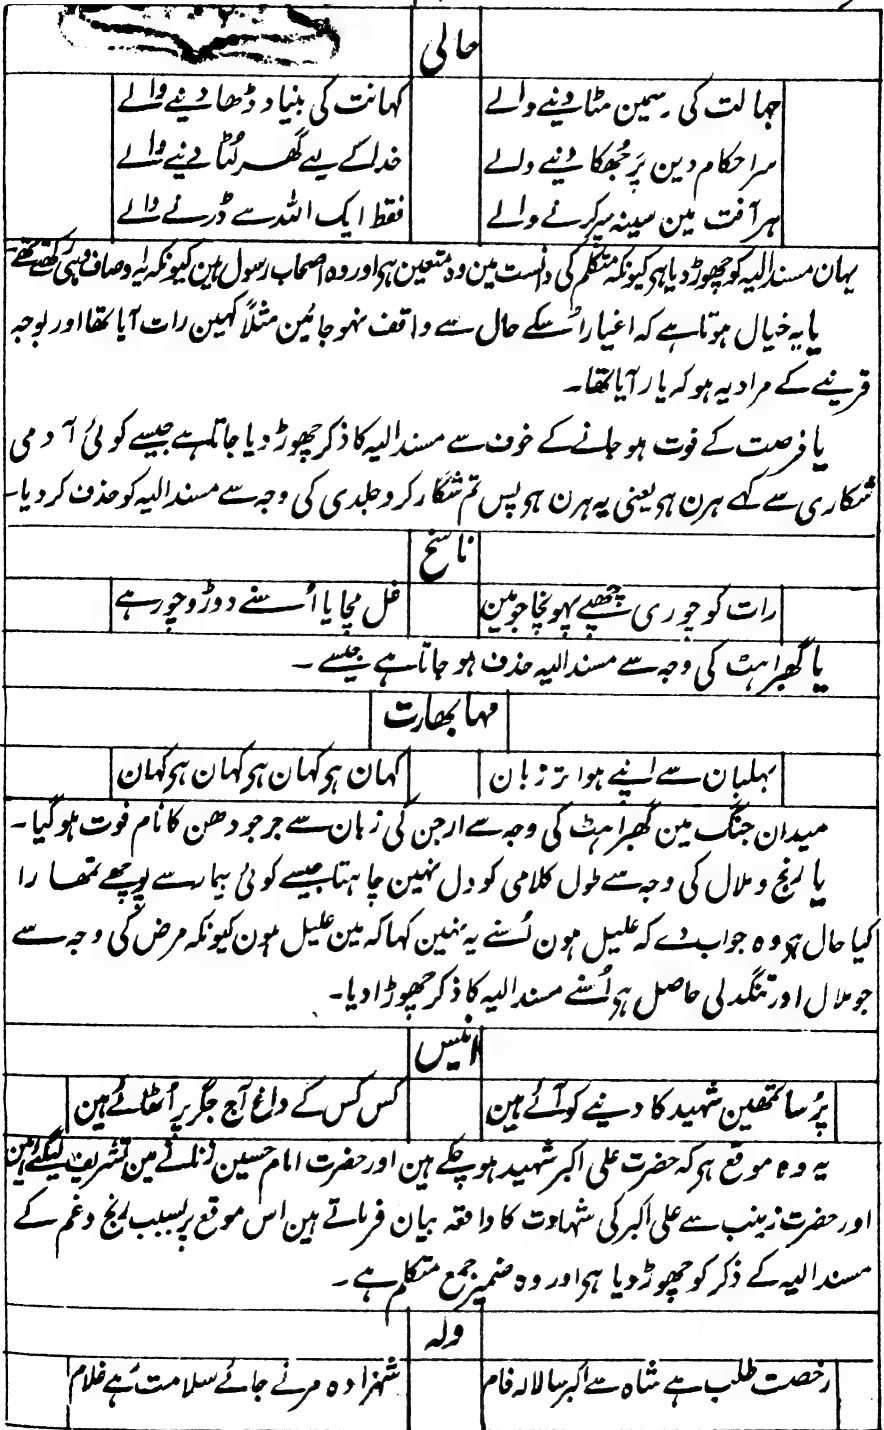 حالی
جہالت کی رسمین مٹا دینے والے کہانت کی بنیاد ڈھا دینے والے
سر احکام دین پر جُھکا دینے والے خدا کے لیے گھر لُٹا دینے والے
ہر آفت مین سینہ سپر کرنے والے فقط ایک اللہ سے ڈرنے والے
یہان مسند الیہ کو چھوڑ دیا ہی کیونکہ متکلم کی دانست مین وہ متعین ہی اور وہ اصحاب رسول ہین کیونکہ یہ اوصاف وہی رکھتے تھے۔
یا یہ خیال ہوتا ہے کہ اغیار اُسکے حال سے واقف نہو جائین مثلاً کہین رات آیا تھا اور بوجہ
قرینے کے مراد یہ ہو کہ یار آیا تھا۔
یا فرصت کے فوت ہو جانے کے خوف سے مسند الیہ کا ذکر چھوڑ دیا جاتا ہے جیسے کوئی آدمی
شکاری سے کہے ہرن ہی یعنی یہ ہرن ہی پس تم شکار کرو جلدی کی وجہ سے مسند الیہ کو حذف کر دیا۔
ناسخ
رات کو چوری چھپے پہونچا جو مین غل مچایا اُسنے دوڑو چور ہے
یا گھبراہٹ کی وجہ سے مسند الیہ حذف ہو جاتا ہے جیسے ۔
مہابھارت
بہلبان سے اپنے ہوا تر زبان کہان ہی کہان ہی کہان ہی کہان
میدان جنگ مین گھبراہٹ کی وجہ سے ارجن کی زبان سے جرجودھن کا نام فوت ہو گیا۔
یا رنج و ملال کی وجہ سے طول کلامی کو دل نہین چاہتا جیسے کوئی بیمار سے پوچھے تمھارا
کیا حال ہی وہ جواب دے کہ علیل ہون اُسنے یہ نہین کہا کہ مین علیل ہون کیونکہ مرض کی وجہ سے
جو ملال اور تنگدلی حاصل ہی اُسنے مسند الیہ کا ذکر چھوڑا دیا۔
انیس
پُرسا تمھین شہید کا دینے کو آئے ہین کس کس کے داغ آج جگر پر اُٹھائے ہین
یہ وہ موقع ہی کہ حضرت علی اکبر شہید ہو چکے ہین اور حضرت امام حسین زنانے مین تشریف لیگئے ہین
اور حضرت زینب سے علی اکبر کی شہادت کا واقعہ بیان فرماتے ہین اس موقع پر بسبب رنج و غم کے
مسند الیہ کے ذکر کو چھوڑ دیا ہی اور وہ ضمیر جمع متکلم ہے ۔
ولہ
رخصت طلب ہے شاہ سے اکبر سا لالہ فام شہزادہ مرنے جائے سلامت رہے غلام